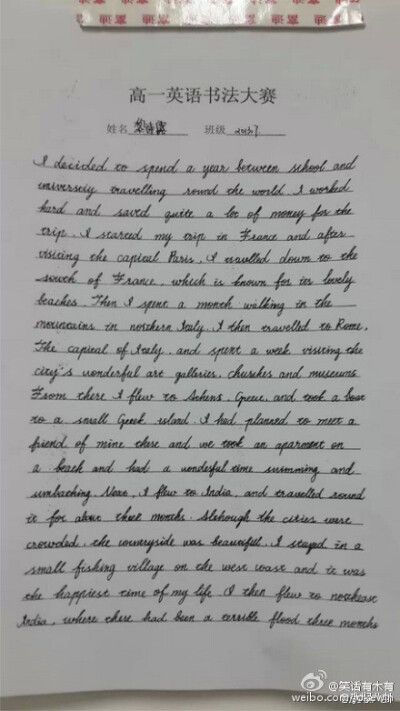 高一英语书法大赛
姓名 班级
I decided to spend a year between school and
university travelling round the world. I worked
hard and saved quite a lot of money for the
trip. I started my trip in France and after
visiting the capital Paris, I travelled down to the
south of France, which is known for its lovely
beaches. Then I spent a month walking in the
mountains in northern Italy. I then travelled to Rome,
The capital of Italy, and spent a week visiting the
city's wonderful art galleries, churches and museums
From there I flew to Athens, Greece, and took a boat
to a small Greek island. I had planned to meet a
friend of mine there and we took an aparment on
a beach and had a wonderful time swimming and
sunbathing. Next, I flew to India, and travelled round
it for about three months. Although the cities were
crowded, the countryside was beautiful. I stayed in a
small fishing village on the west coast and it was
the happiest time of my life. I then flew to northeast
India, where there had been a terrible flood three months
@笑话有木有